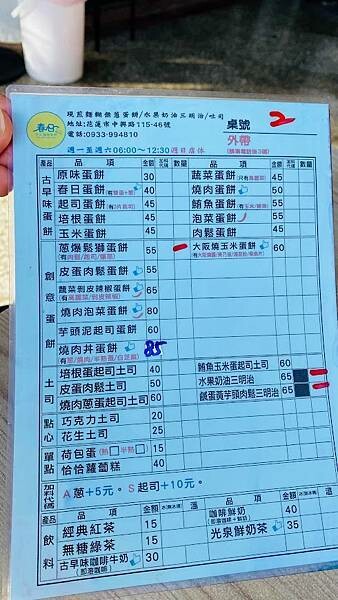 春日
現煎麵糊做蔥蛋餅/水果奶油三明治/吐司
地址:花蓮市中興路115-46號
電話:0933-994810
週一至週六06:00～12:30 週日店休
桌號 2
外帶
品 項 金額 加料代碼 數量
古早味蛋餅
原味蛋餅 30
春日蛋餅 40
起司蛋餅 45
培根蛋餅 45
玉米蛋餅 45
蔬菜蛋餅 45
燒肉蛋餅 50
鮪魚蛋餅 55
泡菜蛋餅 55
肉鬆蛋餅 45
創意蛋餅
蔥爆鬆獅蛋餅 55
大阪燒玉米蛋餅 60
皮蛋肉鬆蛋餅 55
蔬菜剝皮辣椒蛋餅 65
(有高麗菜/剝皮辣椒)
燒肉泡菜蛋餅 80
芋頭泥起司蛋餅 60
燒肉丼蛋餅 85
土司
培根蛋起司土司 40
皮蛋肉鬆土司 50
燒肉蔥蛋起司土司 60
鮪魚玉米蛋起司土司 60
水果奶油三明治 65
鹹蛋黃芋頭肉鬆三明治 65
點心
巧克力土司 20
花生土司 25
單點
荷包蛋(熟 半熟) 15
恰恰蘿蔔糕 40
加料代碼
A蔥+5元。S起司+10元。
產品 品 項 金額 冰 溫
飲料
經典紅茶 15
無糖綠茶 15
古早味咖啡牛奶 30
(即溶咖啡)
咖啡鮮奶 40
(即溶咖啡+鮮奶)
光泉鮮奶茶 35